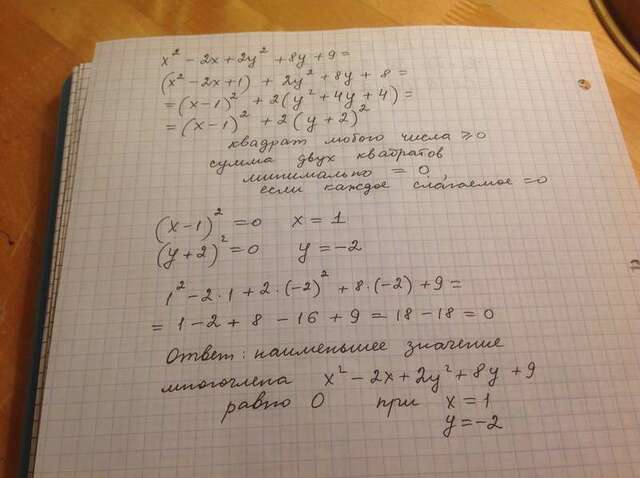 x² − 2x + 2y² + 8y + 9 =
(x² − 2x + 1) + 2y² + 8y + 8 =
= (x−1)² + 2(y² + 4y + 4) =
= (x−1)² + 2(y+2)²
квадрат любого числа ≥ 0
сумма двух квадратов
минимально = 0,
если каждое слагаемое = 0
(x−1)² = 0 x = 1
(y+2)² = 0 y = −2
1² − 2·1 + 2·(−2)² + 8·(−2) + 9 =
= 1 − 2 + 8 − 16 + 9 = 18 − 18 = 0
Ответ: наименьшее значение
многочлена x² − 2x + 2y² + 8y + 9
равно 0 при x = 1
y = −2